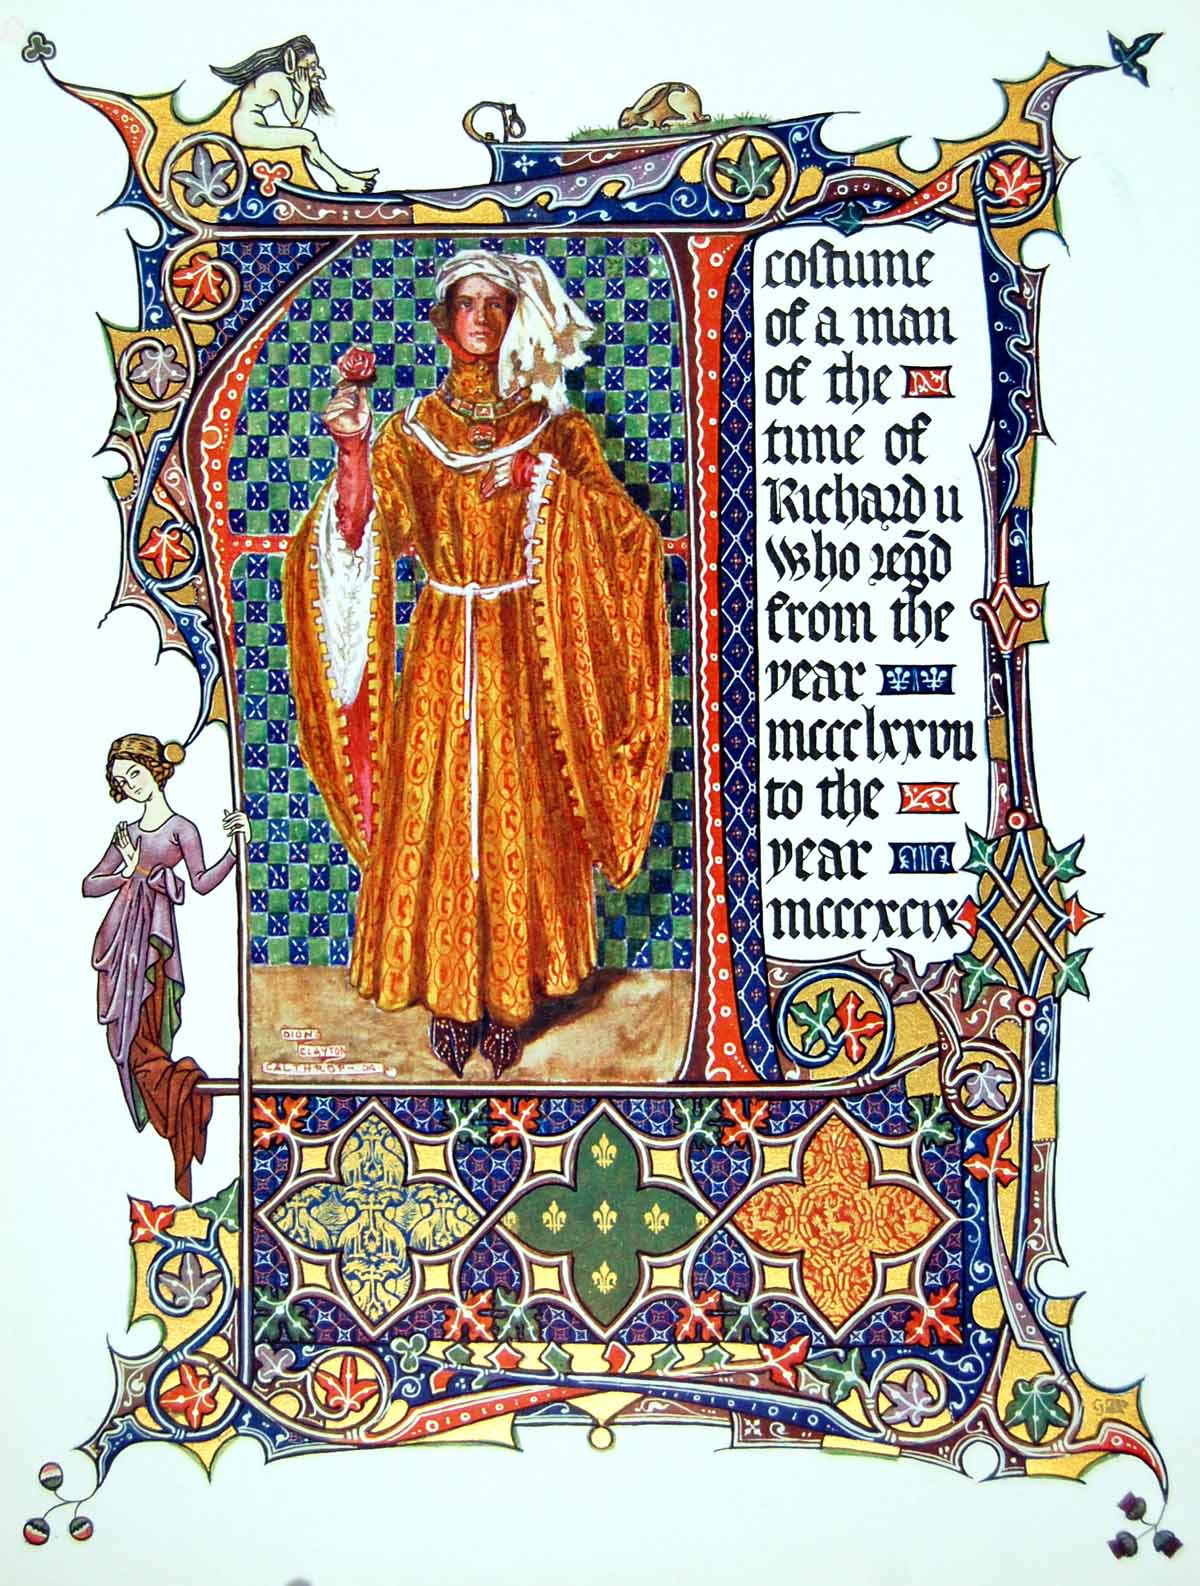 costume
of a man
of the
time of
Richard ii
Who regd
from the
year
mccclxxvii
to the
year
mcccxcix
DION
CLAYTON
CALTHROP-